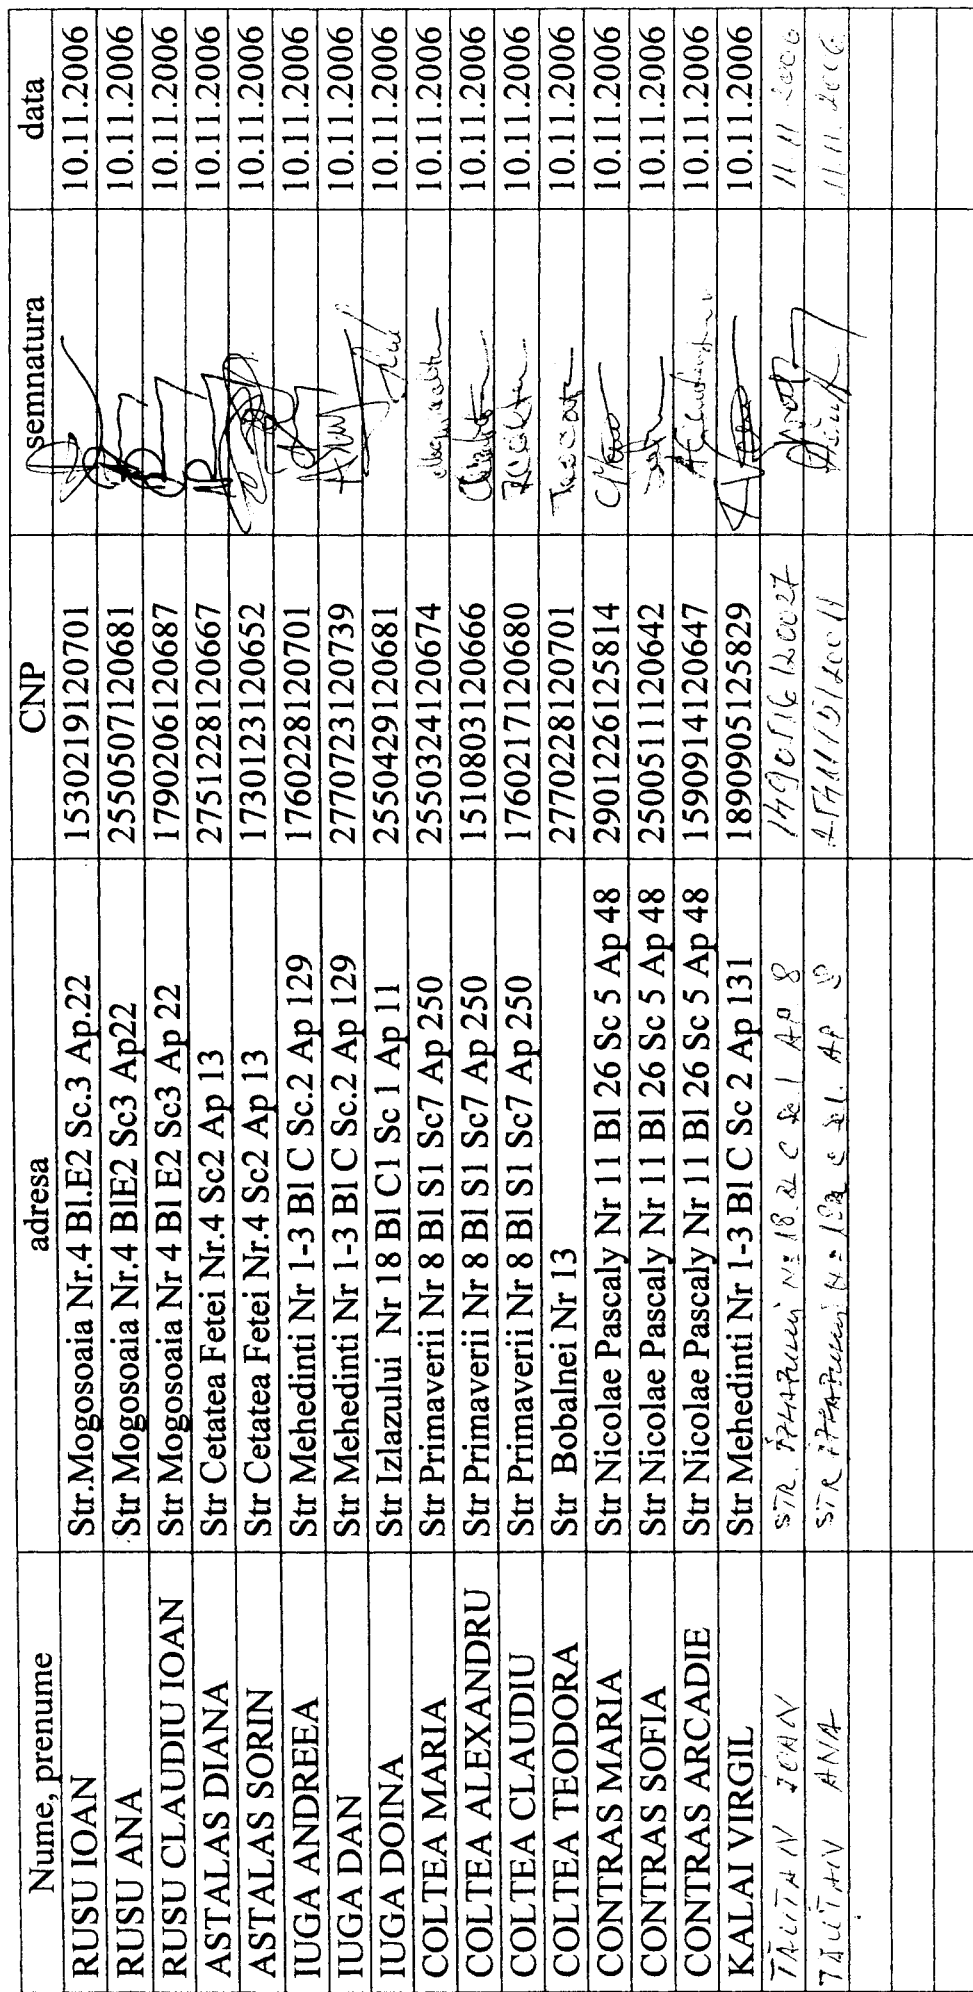 Nume, prenume adresa CNP semnatura data
RUSU IOAN Str.Mogosoaia Nr.4 Bl.E2 Sc.3 Ap.22 1530219120701 10.11.2006
RUSU ANA Str Mogosoaia Nr.4 BlE2 Sc3 Ap22 2550507120681 10.11.2006
RUSU CLAUDIU IOAN Str Mogosoaia Nr 4 Bl E2 Sc3 Ap 22 1790206120687 10.11.2006
ASTALAS DIANA Str Cetatea Fetei Nr.4 Sc2 Ap 13 2751228120667 10.11.2006
ASTALAS SORIN Str Cetatea Fetei Nr.4 Sc2 Ap 13 1730123120652 10.11.2006
IUGA ANDREEA Str Mehedinti Nr 1-3 Bl C Sc.2 Ap 129 1760228120701 10.11.2006
IUGA DAN Str Mehedinti Nr 1-3 Bl C Sc.2 Ap 129 2770723120739 10.11.2006
IUGA DOINA Str Izlazului Nr 18 Bl C1 Sc 1 Ap 11 2550429120681 10.11.2006
COLTEA MARIA Str Primaverii Nr 8 Bl S1 Sc7 Ap 250 2550324120674 10.11.2006
COLTEA ALEXANDRU Str Primaverii Nr 8 Bl S1 Sc7 Ap 250 1510803120666 10.11.2006
COLTEA CLAUDIU Str Primaverii Nr 8 Bl S1 Sc7 Ap 250 1760217120680 10.11.2006
COLTEA TEODORA Str Bobalnei Nr 13 2770228120701 10.11.2006
CONTRAS MARIA Str Nicolae Pascaly Nr 11 Bl 26 Sc 5 Ap 48 2901226125814 10.11.2006
CONTRAS SOFIA Str Nicolae Pascaly Nr 11 Bl 26 Sc 5 Ap 48 2500511120642 10.11.2006
CONTRAS ARCADIE Str Nicolae Pascaly Nr 11 Bl 26 Sc 5 Ap 48 1590914120647 10.11.2006
KALAI VIRGIL Str Mehedinti Nr 1-3 Bl C Sc 2 Ap 131 1890905125829 10.11.2006
IOAN STR. 18 C AP 8 11.11.2006
ANA STR AP 11.11.2006